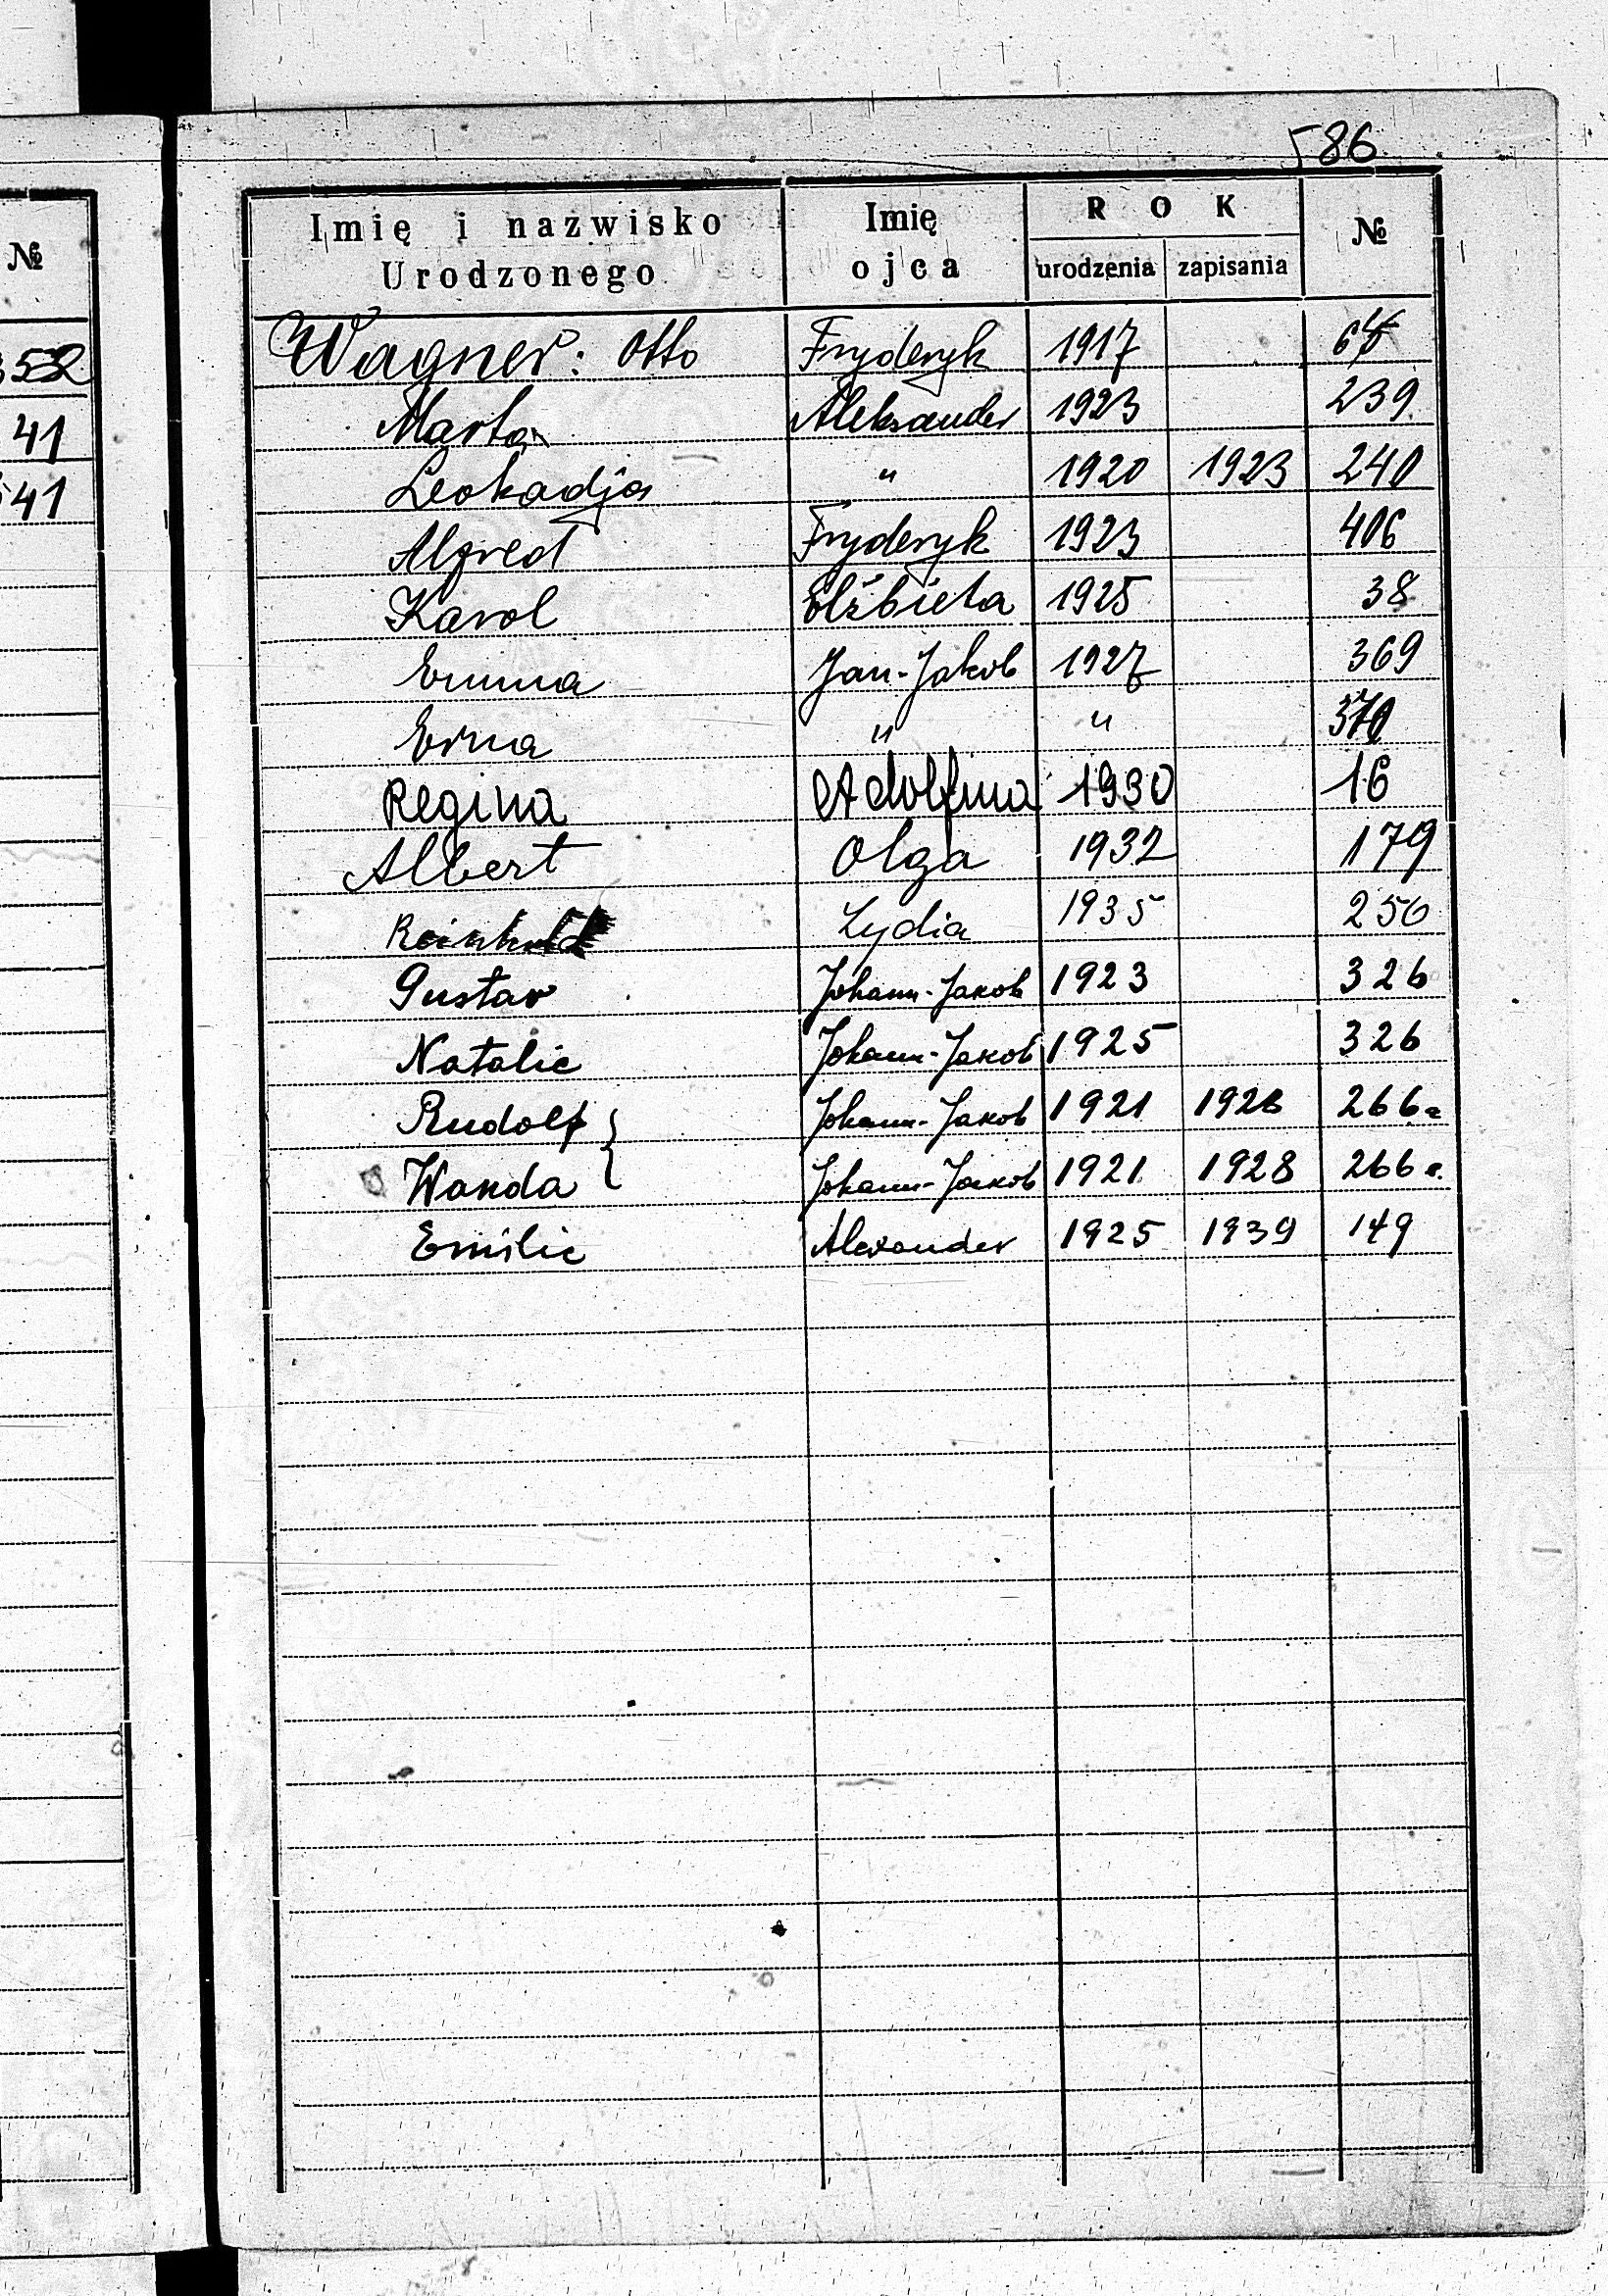 586
Imię i nazwisko Urodzonego Imię ojca ROK urodzenia zapisania № 
№
Wagner: Otto Fryderyk 1917
352
Marta Aleksander 1923 239
41
Leokadja " 1920 1923 240
41
Alfred Fryderyk 1923 406
Karol Elżbieta 1925 38
Emma Jan-Jakob 1927 369
Erna " " 370
Regina Adolfina 1930 16
Albert Olga 1932 179
Reinhold Lydia 1935 256
Gustav Johann-Jakob 1923 326
Natalie Johann-Jakob 1925 326
Rudolf } Johann-Jakob 1921 1928 266a
Wanda } Johann-Jakob 1921 1928 266a.
Emilie Alexander 1925 1939 149